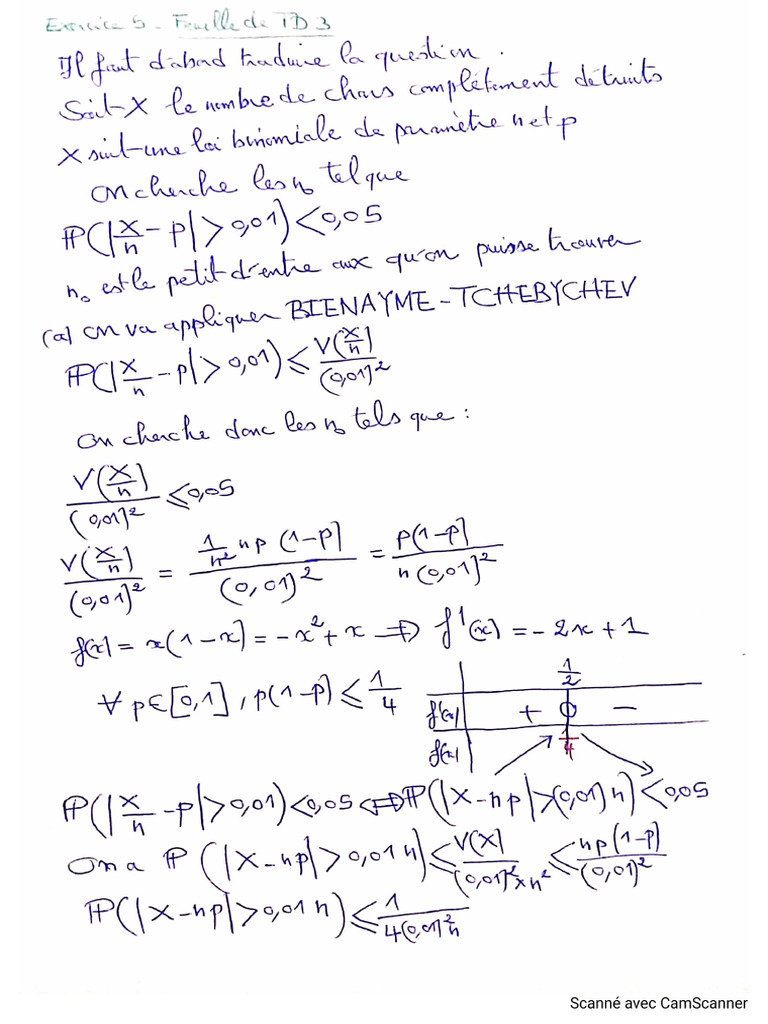 Exercice 5 - Feuille de TD 3
Il faut d'abord traduire la question.
Soit X le nombre de chars complètement détruits
X suit une loi binomiale de paramètre n et p
On cherche les n₀ tel que
ℙ(|X/n - p| > 0,01) < 0,05
n₀ est le petit d'entre aux qu'on puisse trouver
(a) On va appliquer BIENAYME-TCHEBYCHEV
ℙ(|X/n - p| > 0,01) ≤ V(X/n)/(0,01)²
On cherche donc les n₀ tels que :
V(X/n)/(0,01)² ≤ 0,05
V(X/n)/(0,01)² = (1/n² np (1-p))/(0,01)² = p(1-p)/n(0,01)²
f(x) = x(1-x) = -x² + x ⇒ f'(x) = -2x + 1
∀ p ∈ [0,1], p(1-p) ≤ 1/4
1/2
f'(x) + 0 -
f(x) 1/4
ℙ(|X/n - p| > 0,01) < 0,05 ⇔ ℙ(|X - np| > (0,01) n) < 0,05
On a ℙ (|X - np| > 0,01 n) ≤ V(X)/(0,01)² × n² ≤ np(1-p)/(0,01)²
ℙ(|X - np| > 0,01 n) ≤ 1/4(0,01)² n
Scanné avec CamScanner